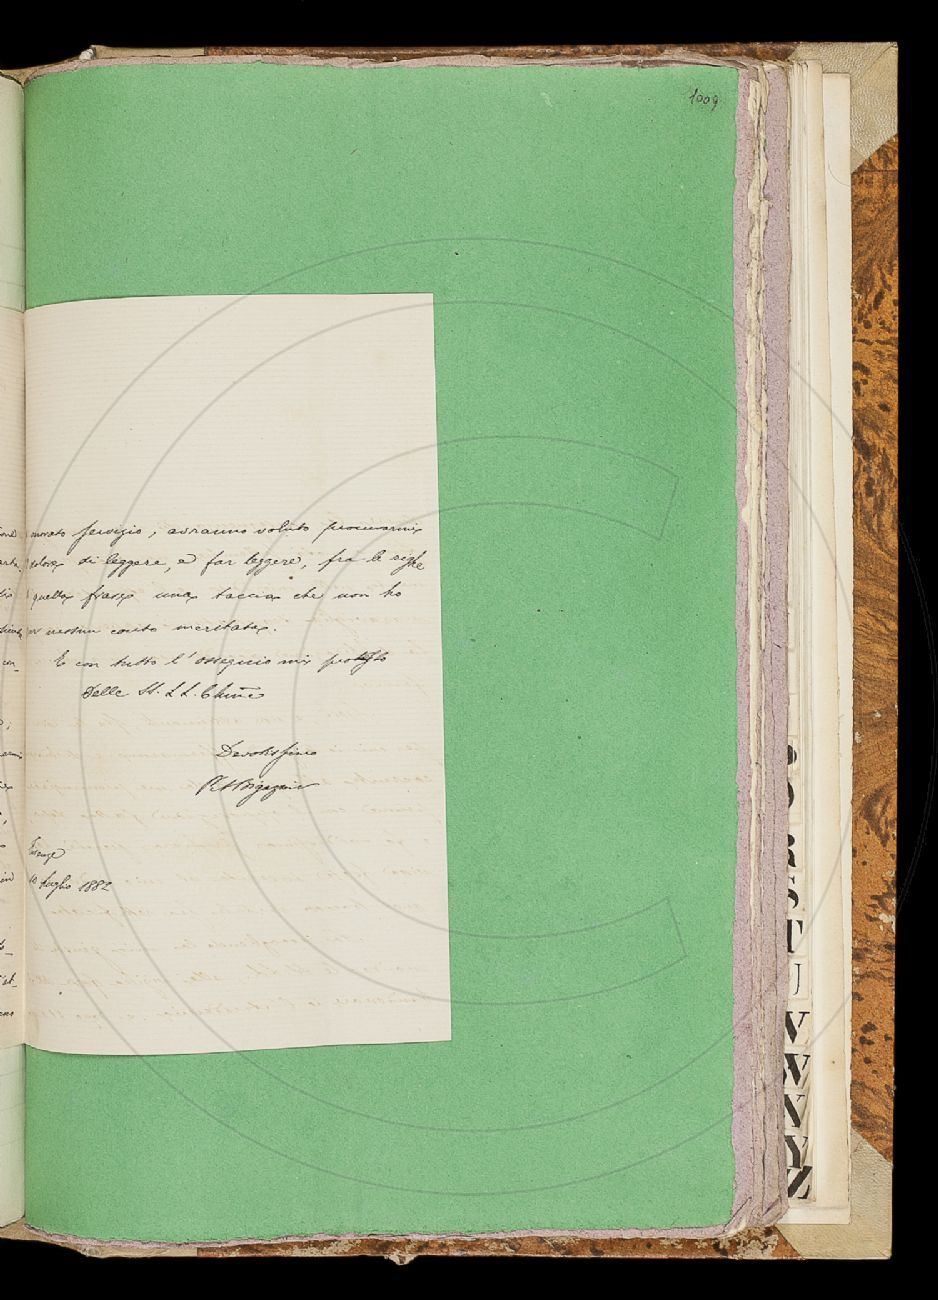 1009
onorato servizio, avranno voluto procurarmi
dolore di leggere, e far leggere, fra le righe
quella frase una taccia che non ho
per nessun conto meritata.
E con tutto l'ossequio mi protesto
Delle SS. LL. Chme
Devotissimo
Firenze
10 Luglio 1882
S
T
U
V
W
X
Y
Z